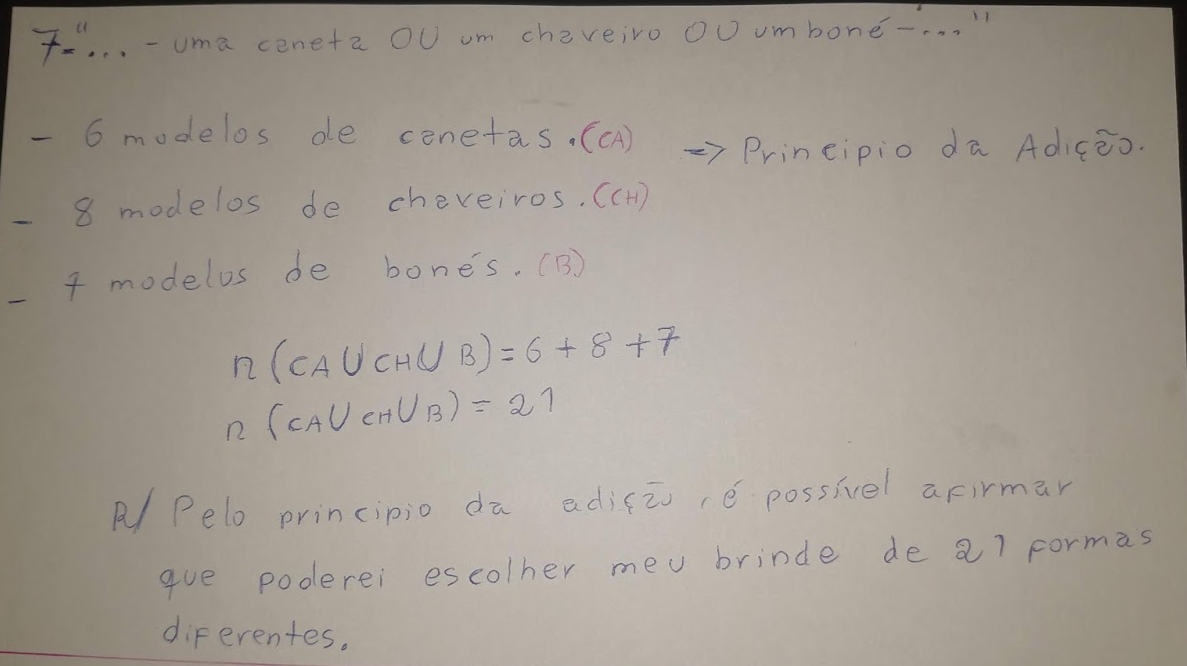 7-"... - uma caneta OU um chaveiro OU um boné -..."
- 6 modelos de canetas. (CA) => Principio da Adição.
- 8 modelos de chaveiros. (CH)
- 7 modelos de bonés. (B)
n (CA U CH U B) = 6 + 8 + 7
n (CA U CH U B) = 21
R/ Pelo principio da adição, é possível afirmar
que poderei escolher meu brinde de 21 formas
diferentes.